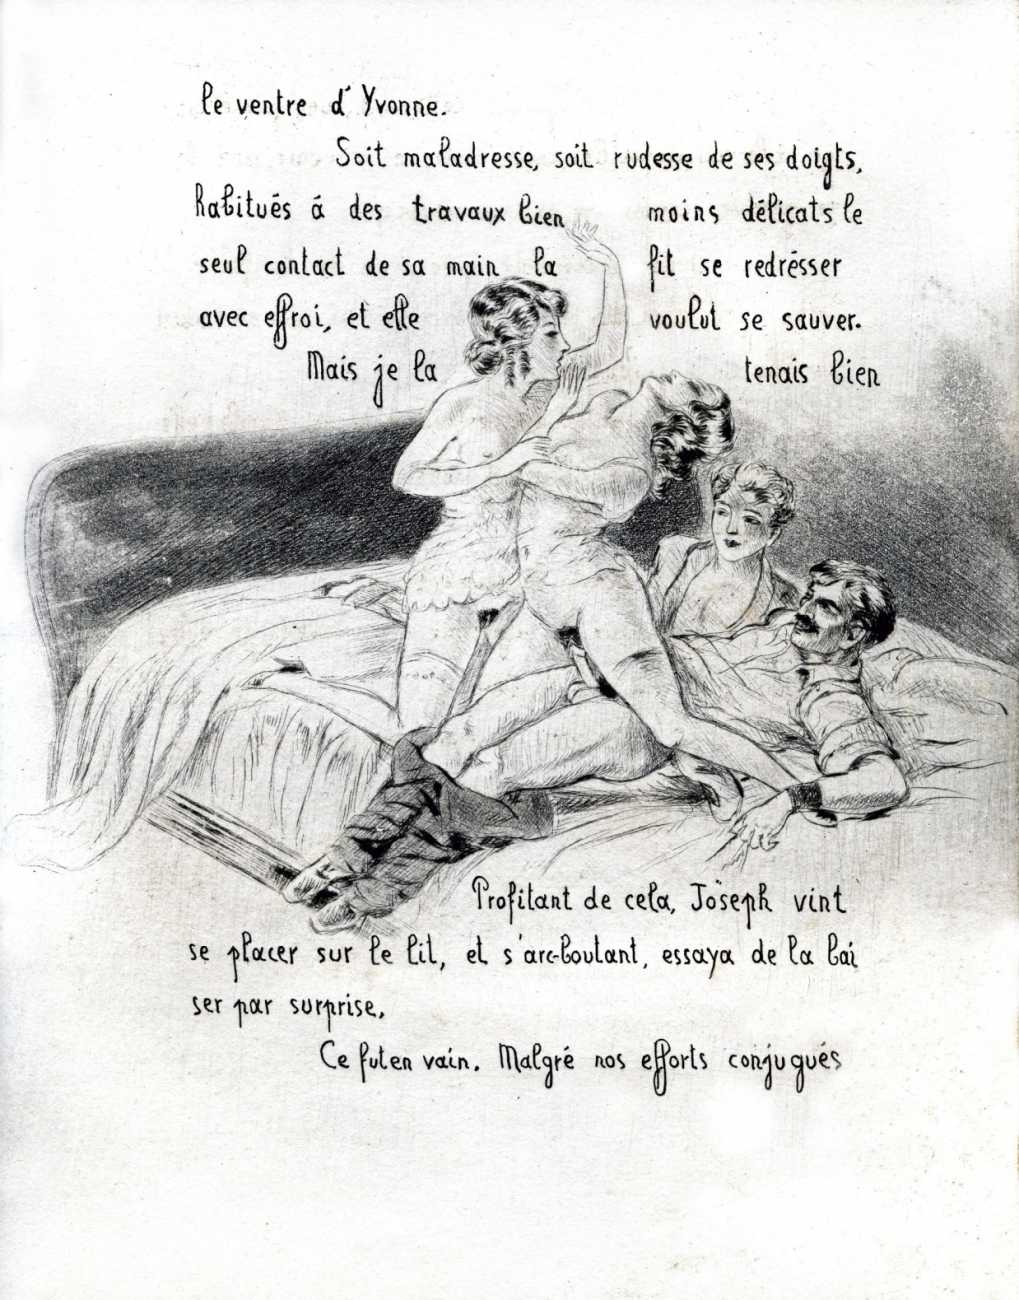 le ventre d' Yvonne.
Soit maladresse, soit rudesse de ses doigts,
habitués à des travaux bien moins délicats le
seul contact de sa main la fit se redrésser
avec effroi, et elle voulut se sauver.
Mais je la tenais bien
Profitant de cela, Joseph vint
se placer sur le lit, et s'arc-boutant, essaya de la bai
ser par surprise,
Ce fut en vain. Malgré nos efforts conjugués